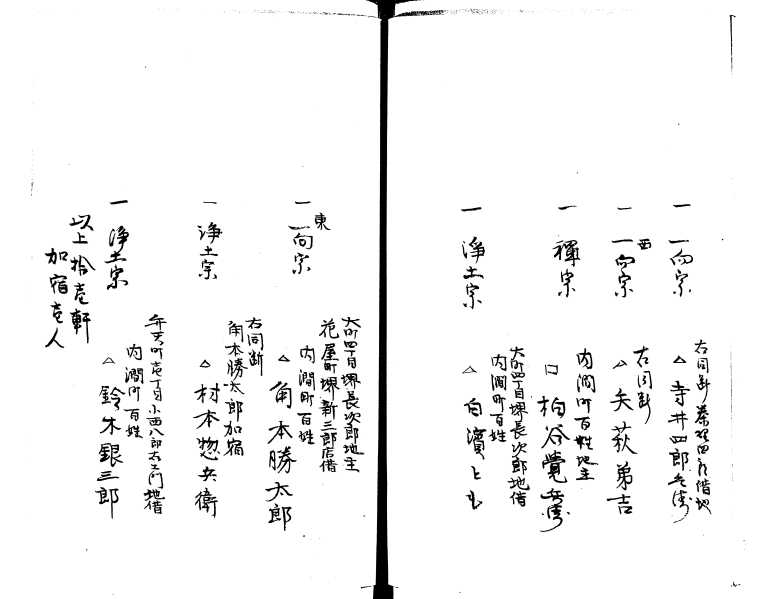 一 一向宗
右同断
△ 寺井四郎兵衛
一 西 一向宗
右同断
△ 矢萩弟吉
一 禅宗
内澗町百姓地主
□ 柏谷覚兵衛
一 浄土宗
大町四丁目堺長次郎地借
内澗町百姓
△ 白濱
一 東 一向宗
大町四丁目堺長次郎地主
花屋町堺新三郎店借
内澗町百姓
△ 角本勝太郎
一 浄土宗
右同断
角本勝太郎加宿
△ 村本惣兵衛
一 浄土宗
弁天町壱丁目小西八郎右エ門地借
内澗町百姓
△ 鈴木銀三郎
以上拾壱軒
加宿壱人